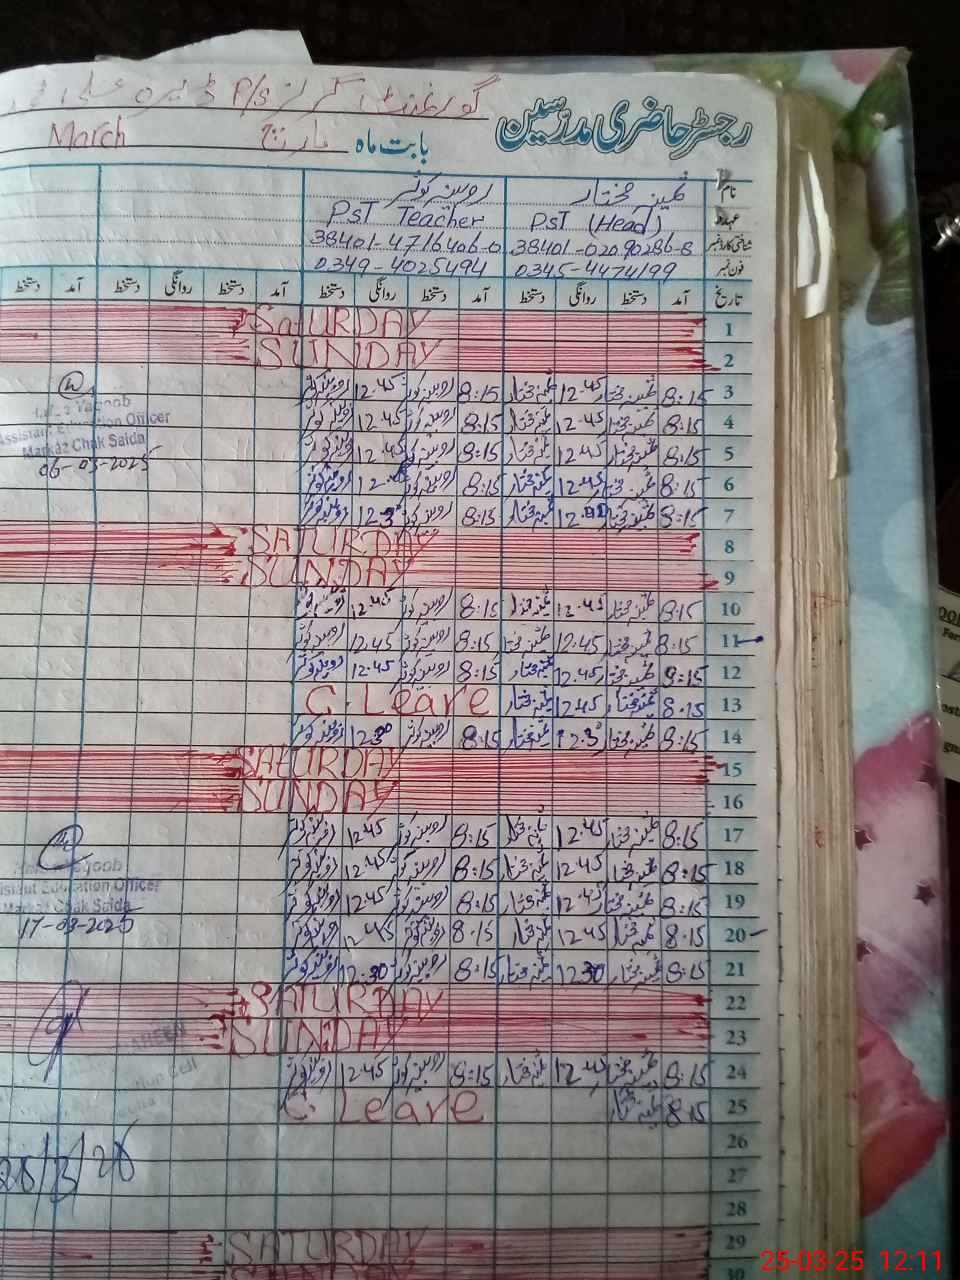 گورنمنٹ گرلز P/s ڈیرہ
رجسٹر حاضری مدرسین
بابت ماہ مارچ March
نام ثمینہ مختار روبینہ کوثر
عہدہ PST (Head) PST Teacher
شناختی کارڈ نمبر 38401-0209286-8 38401-4716406-0
فون نمبر 0345-4474199 0349-4025494
تاریخ آمد دستخط روانگی دستخط آمد دستخط روانگی دستخط آمد دستخط روانگی دستخط آمد دستخط
1 SATURDAY
2 SUNDAY
3 8:15 ثمینہ مختار 12.45 ثمینہ مختار 8:15 روبینہ کوثر 12.45 روبینہ کوثر
4 8:15 ثمینہ مختار 12.45 ثمینہ مختار 8:15 روبینہ کوثر 12.45 روبینہ کوثر
Yaqoob
Assistant Education Officer
Markaz Chak Saida
06-03-2025
5 8:15 ثمینہ مختار 12.45 ثمینہ مختار 8:15 روبینہ کوثر 12.45 روبینہ کوثر
6 8:15 ثمینہ مختار 12.45 ثمینہ مختار 8:15 روبینہ کوثر روبینہ کوثر
7 8:15 ثمینہ مختار ثمینہ مختار 8:15 روبینہ کوثر روبینہ کوثر
8 SATURDAY
9 SUNDAY
10 8:15 ثمینہ مختار 12.45 ثمینہ مختار 8:15 روبینہ کوثر 12.45 روبینہ کوثر
11 8:15 ثمینہ مختار 12.45 ثمینہ مختار 8:15 روبینہ کوثر 12.45 روبینہ کوثر
12 8:15 ثمینہ مختار 12.45 ثمینہ مختار 8:15 روبینہ کوثر 12.45 روبینہ کوثر
13 8.15 ثمینہ مختار 12.45 ثمینہ مختار C. Leave
14 8:15 ثمینہ مختار 12.30 ثمینہ مختار 8:15 روبینہ کوثر 12.30 روبینہ کوثر
15 SATURDAY
16 SUNDAY
17 8:15 ثمینہ مختار 12.45 ثمینہ مختار 8:15 روبینہ کوثر 12.45 روبینہ کوثر
18 8:15 ثمینہ مختار 12.45 ثمینہ مختار 8:15 روبینہ کوثر 12.45 روبینہ کوثر
Assistant Education Officer
Markaz Chak Saida
17-03-2025
19 8:15 ثمینہ مختار 12.45 ثمینہ مختار 8:15 روبینہ کوثر 12.45 روبینہ کوثر
20 8:15 ثمینہ مختار 12.45 ثمینہ مختار 8.15 روبینہ کوثر 12.45 روبینہ کوثر
21 8:15 ثمینہ مختار 12.30 ثمینہ مختار 8:15 روبینہ کوثر 12.30 روبینہ کوثر
22 SATURDAY
23 SUNDAY
24 8:15 ثمینہ مختار 12.45 ثمینہ مختار 8:15 روبینہ کوثر 12.45 روبینہ کوثر
25 8:15 ثمینہ مختار C. Leave
26
27
28
29 SATURDAY
30 SUNDAY
25-03-25 12:11